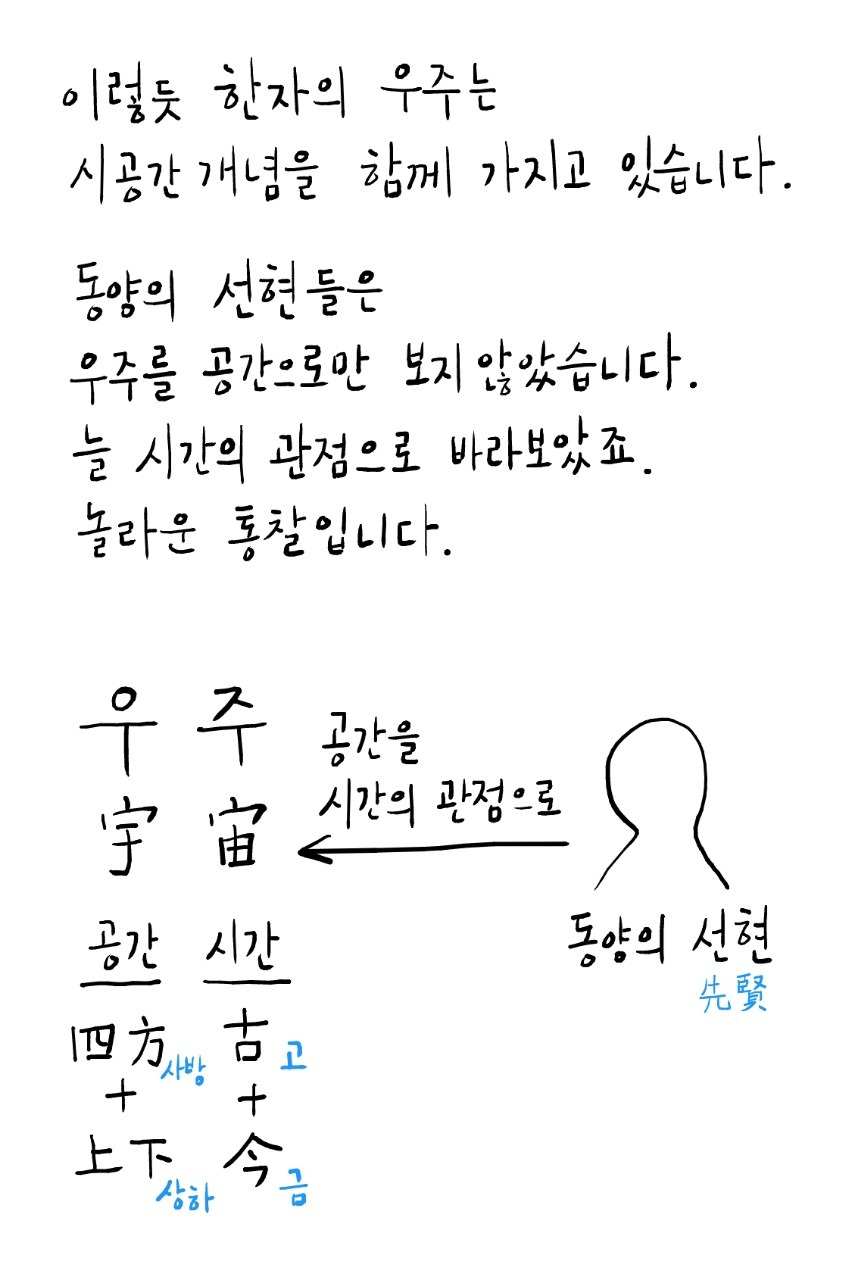 이렇듯 한자의 우주는
시공간 개념을 함께 가지고 있습니다.
동양의 선현들은
우주를 공간으로만 보지 않았습니다.
늘 시간의 관점으로 바라보았죠.
놀라운 통찰입니다.
우주
宇宙
공간을
시간의 관점으로
공간 시간
동양의 선현
先賢
四方 사방 古 고
+ +
上下 상하 今 금